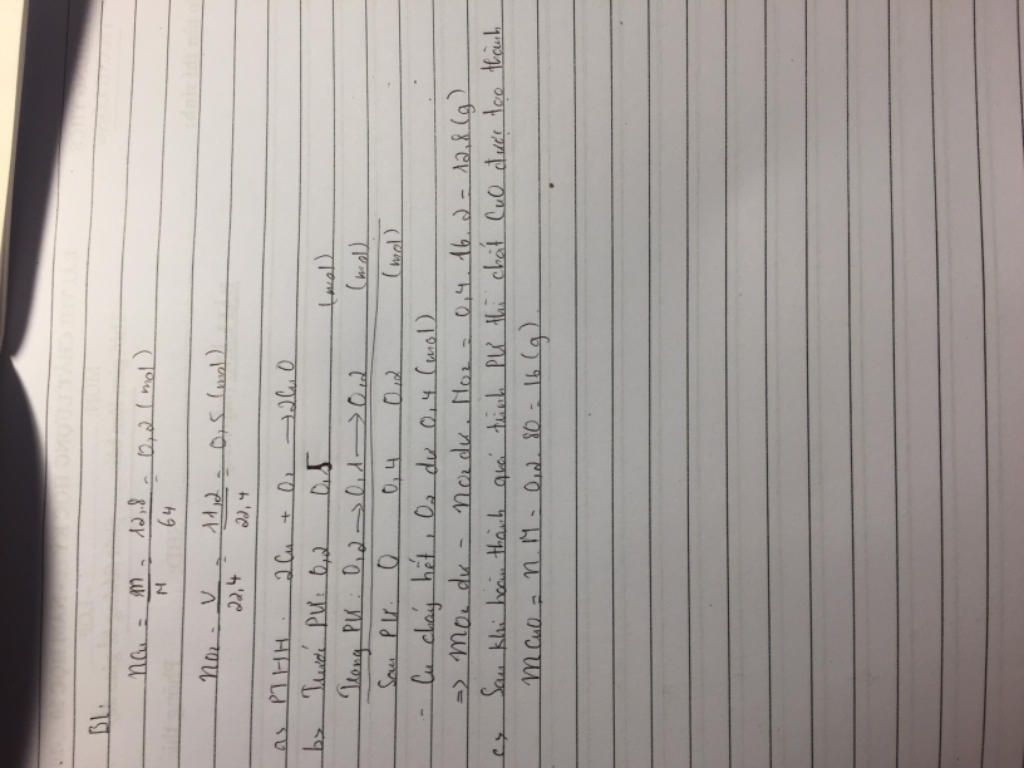 B1.
nCu = m/M = 12,8/64 = 0,2 (mol)
nO2 = V/22,4 = 11,2/22,4 = 0,5 (mol)
a> PTHH: 2Cu + O2 → 2CuO
b> Trước PƯ: 0,2 0,5 (mol)
Trong PƯ: 0,2 → 0,1 → 0,2 (mol)
Sau PƯ: 0 0,4 0,2 (mol)
- Cu cháy hết, O2 dư 0,4 (mol)
=> mO2 dư = nO2 dư . MO2 = 0,4 . 16 . 2 = 12,8 (g)
c> Sau khi hoàn thành quá trình PƯ thì chất CuO được tạo thành
mCuO = n.M = 0,2 . 80 = 16 (g)